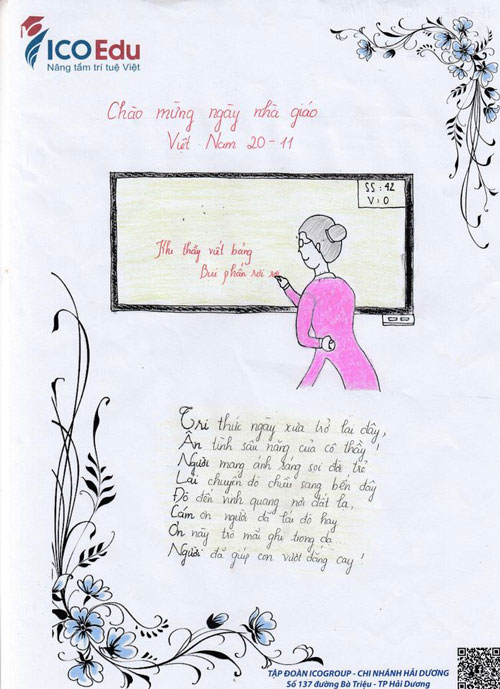 ICO Edu
Nâng tầm trí tuệ Việt
Chào mừng ngày nhà giáo
Việt Nam 20-11
SS: 42
V: 0
Khi thầy viết bảng
Bụi phấn rơi rơi
Tri thức ngày xưa trở lại đây,
Ân tình sâu nặng của cô thầy!
Người mang ánh sáng soi đời trẻ
Lái chuyến đò chiều sang bến đây
Đò đến vinh quang nơi đất lạ,
Cám ơn người đã lái đò hay
Ơn này trò mãi ghi trong dạ...
Người đã giúp con vượt đắng cay!
TẬP ĐOÀN ICOGROUP - CHI NHÁNH HẢI DƯƠNG
Số 137 đường Bà Triệu - TP Hải Dương